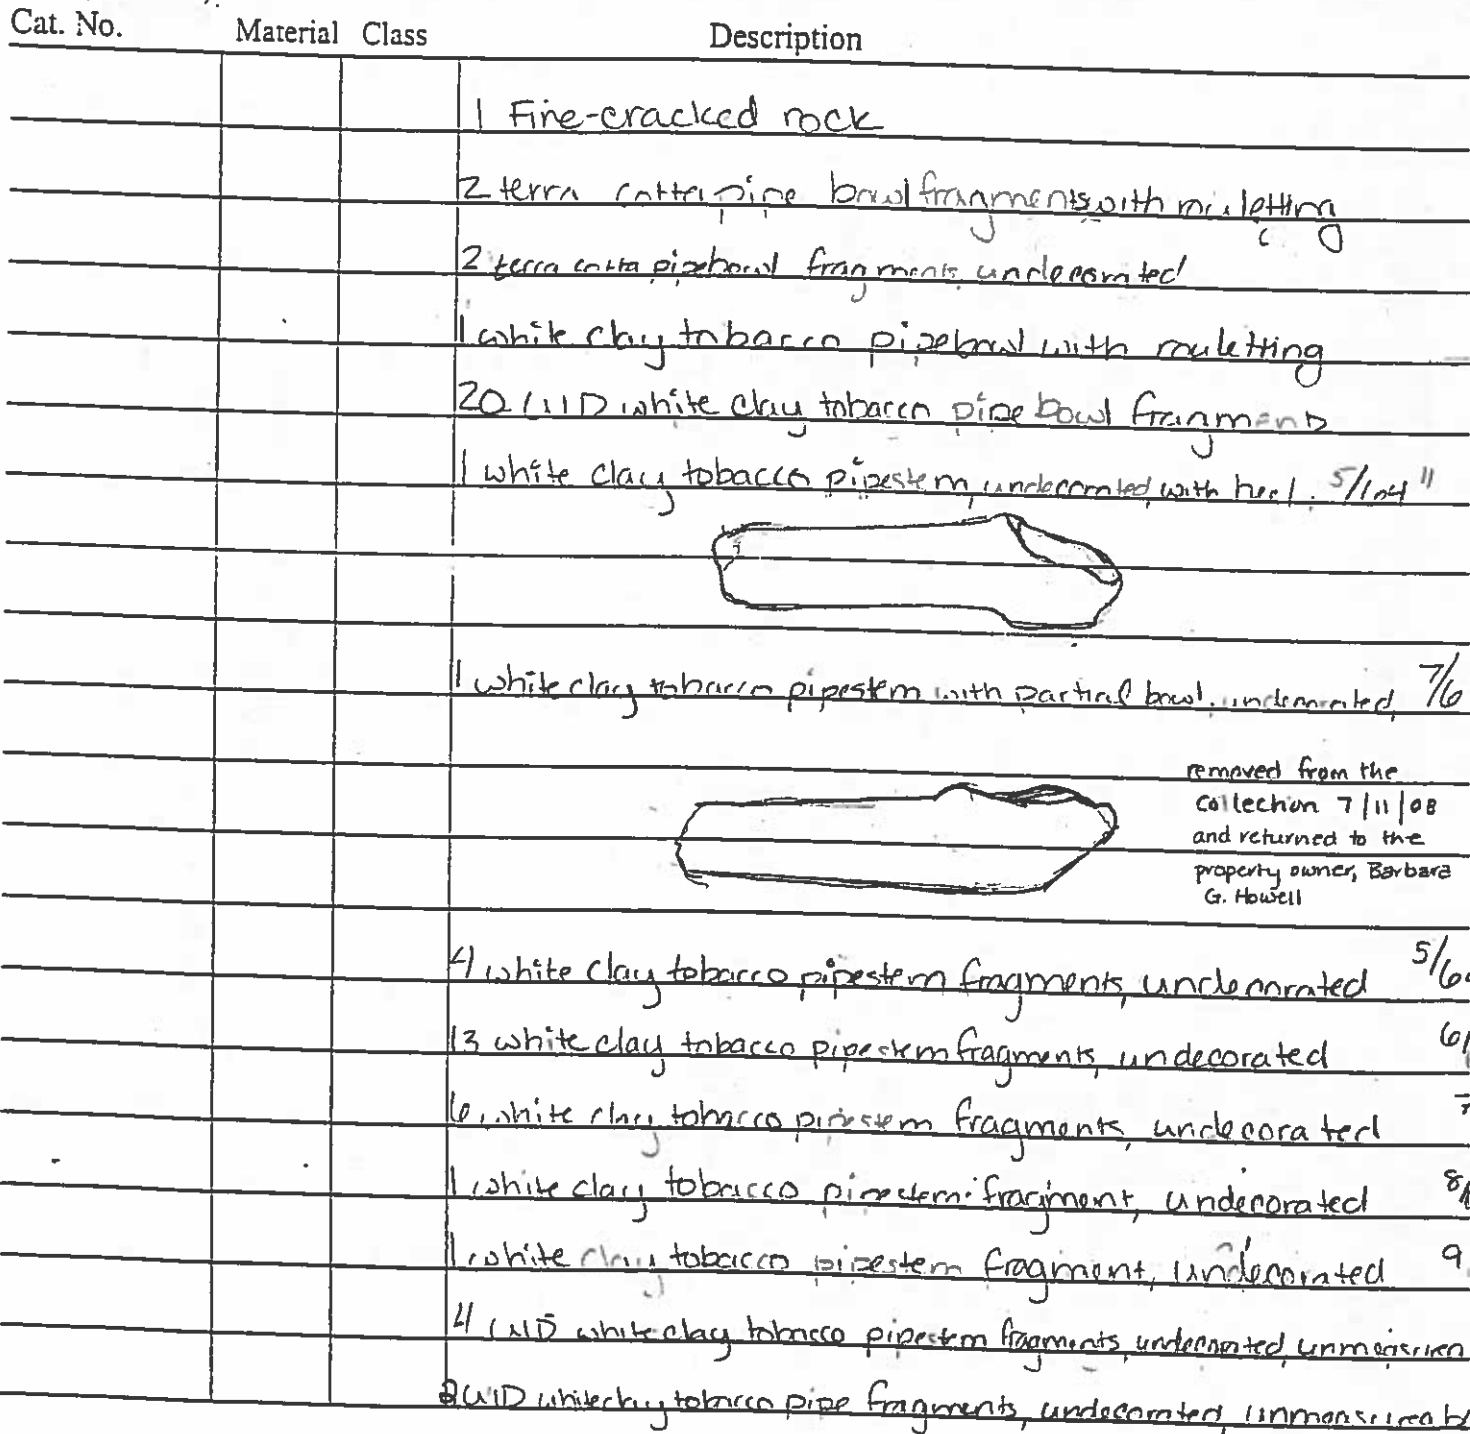 Cat. No. Material Class Description
1 Fire-cracked rock
2 terra cotta pipe bowl fragments with rouletting
2 terra cotta pipebowl fragments, undecorated
1 white clay tobacco pipebowl with rouletting
20 UID white clay tobacco pipe bowl fragments
1 white clay tobacco pipestem, undecorated, with heel. 5/64"
1 white clay tobacco pipestem with partial bowl, undecorated, 7/6
removed from the
collection 7/11/08
and returned to the
property owner, Barbara
G. Howell
4 white clay tobacco pipestem fragments, undecorated 5/6
13 white clay tobacco pipestem fragments, undecorated 6/
6 white clay tobacco pipestem fragments, undecorated 7
1 white clay tobacco pipestem fragment, undecorated 8/
1 white clay tobacco pipestem fragment, undecorated 9
4 UID white clay tobacco pipestem fragments, undecorated,
2 UID white clay tobacco pipe fragments, undecorated,